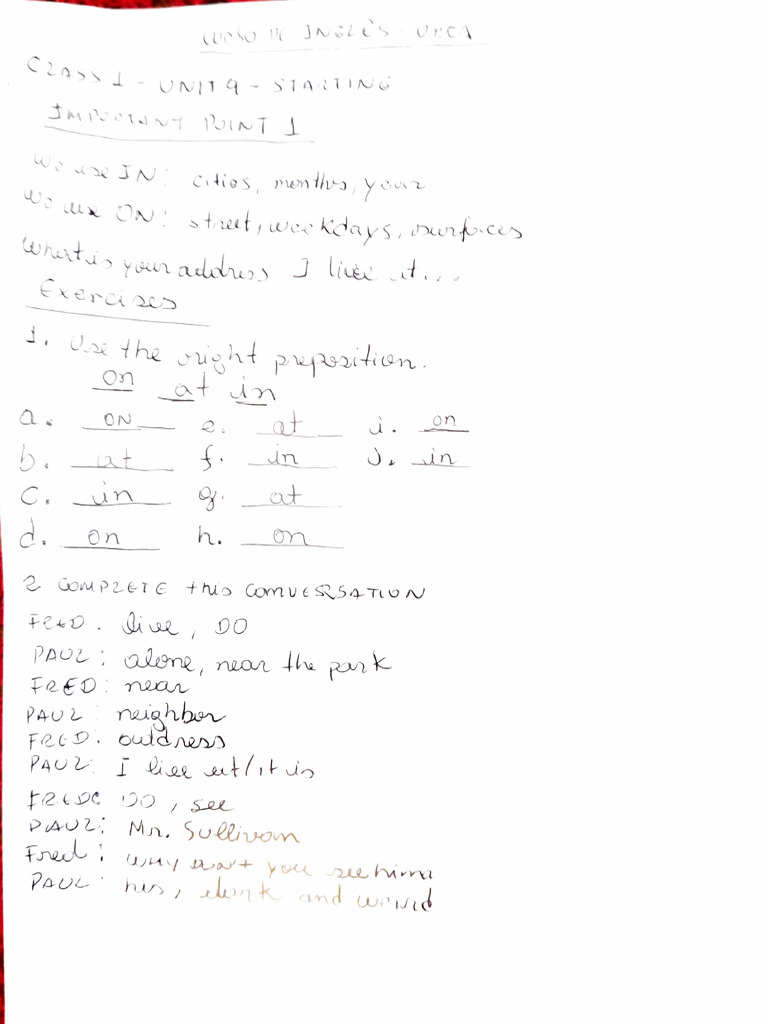 CURSO DE INGLÊS - URCA
CLASS 1 - UNIT 9 - STARTING
IMPORTANT POINT 1
We use IN: cities, months, your
We use ON: street, weekdays, surfaces
What is your address I live at...
Exercises
1. Use the right preposition.
on at in
a. ON e. at i. on
b. at f. in j. in
c. in g. at
d. on h. on
2 COMPLETE this CONVERSATION
FRED: live, DO
PAUL: alone, near the park
FRED: near
PAUL: neighbor
FRED: outdress
PAUL: I live at/it is
FRED: DO, see
PAUL: Mr. Sullivan
Fred: why don't you see him
PAUL: his, dark and weird